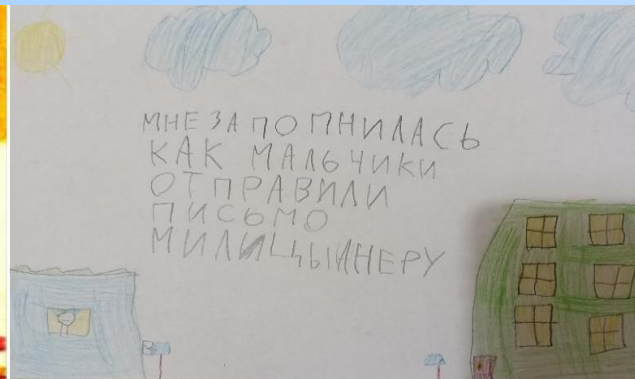 МНЕ ЗАПОМНИЛАСЬ
КАК МАЛЬЧИКИ
ОТПРАВИЛИ
ПИСЬМО
МИЛИЦЫАНЕРУ